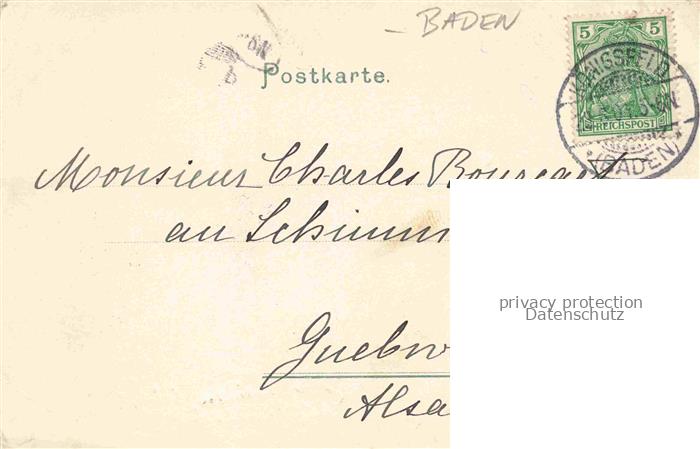 BADEN
Postkarte.
5 5
REICHSPOST
KÖNIGSFELD
(BADEN)
Monsieur Charles
au Schimm
Guebw
Alsa
privacy protection
Datenschutz